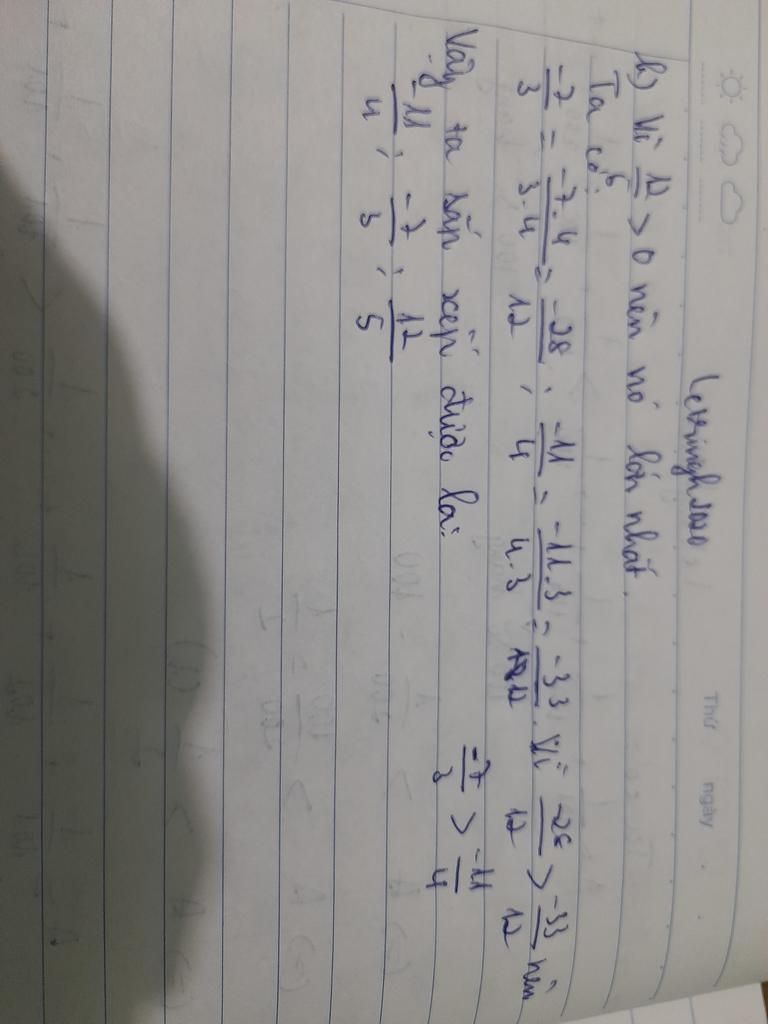 Thứ ngày
b) Vì 12/5 > 0 nên nó lớn nhất.
Ta có:
-7/3 = -7.4/3.4 = -28/12 ; -11/4 = -11.3/4.3 = -33/12. Vì -28/12 > -33/12 nên
-7/3 > -11/4
Vậy ta sắp xếp được là:
-11/4 ; -7/3 ; 12/5